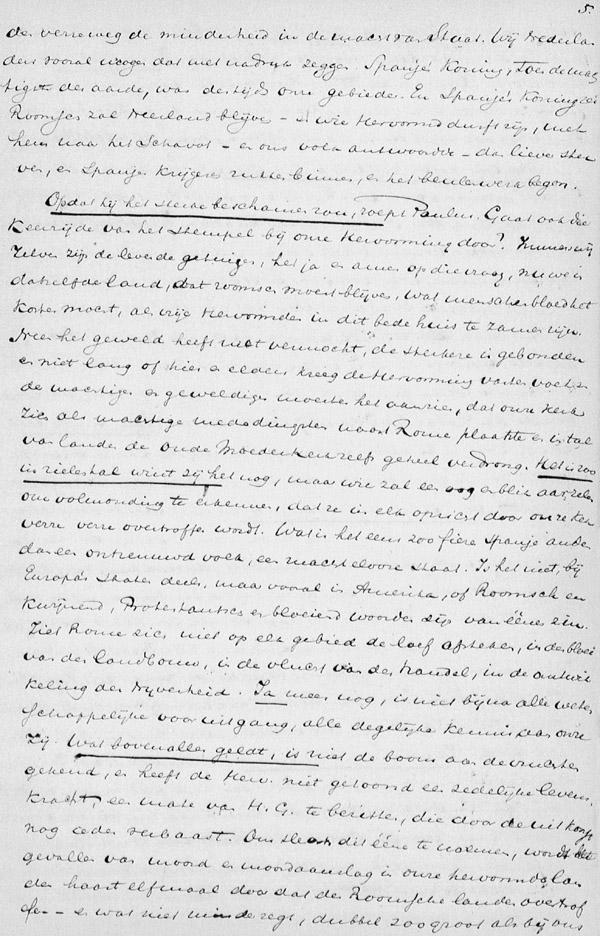 5.
der verreweg de minderheid in de macht van Staat. Wij Nederlan
ders vooral mogen dat met nadruk zeggen. Spanje's Koning, toen de mach
tigste der aarde, was destijds onze gebieder. En Spanje's Koning zei
Roomsch zal Neerland blijven – en wie Hervormd durft zijn, met
hem naar het Schavot – en ons volk antwoordde – dan liever ster
ven, en Spanje's krijgers rukten binnen, en het beulswerk begon.
Opdat hij het sterke beschamen zou, roept Paulus. Gaat ook die
Keerzijde van het stempel bij onze Hervorming door? Immers wij
zelven zijn de levende getuigen, het ja en amen op die vraag, nu we in
datzelfde land, dat roomsch moest blijven, wat menschenbloed het
kosten mocht, als vrije Hervormden in dit bedehuis te zamen zijn.
Neen het geweld heeft niet vermocht, de sterkere is gebonden
en niet lang of hier en elders kreeg de Hervorming vasten voet en
de machtigen en geweldigen moesten het aanzien, dat onze Kerk
zich als machtige mededingster naast Rome plaatste en in tal
van landen de oude Moederkerk zelfs geheel verdrong. Het is zoo
in zielental wint zij het nog, maar wie zal een oogenblik aarzelen
om volmondig te erkennen, dat ze in elk opzicht door onze kerk
verre verre overtroffen wordt. Wat is het eens zoo fiere Spanje anders
dan een ontzenuwd volk, een machteloore Staat. Is het niet, bij
Europa's Staten deels, maar vooral in Amerika, of Roomsch en
kwijnend, Protestantsch en bloeiend woorden zijn van ééne zin.
Ziet Rome zich niet op elk gebied de loef afsteken, in den bloei
van den landbouw, in de vlucht van den handel, in de ontwik
keling der Nijverheid. Ja meer nog, is niet bijna alle weten
schappelijke vooruitgang, alle degelijke kennis aan onze
zij. Wat boven alles geldt, is niet de boom aan de vruchten
gekend, en heeft de Herv. niet getoond een zedelijke levens
kracht, een mate van H. G. te bezitten, die door de uitkomst
nog ieder verbaast. Om slechts dit ééne te noemen, wordt het
gevallen van moord en moordaanslag in onze hervormde lan
den haast elfmaal door dat der Roomsche landen overtrof
fen – en wat niet minder zegt, dubbel zoo groot als bij ons